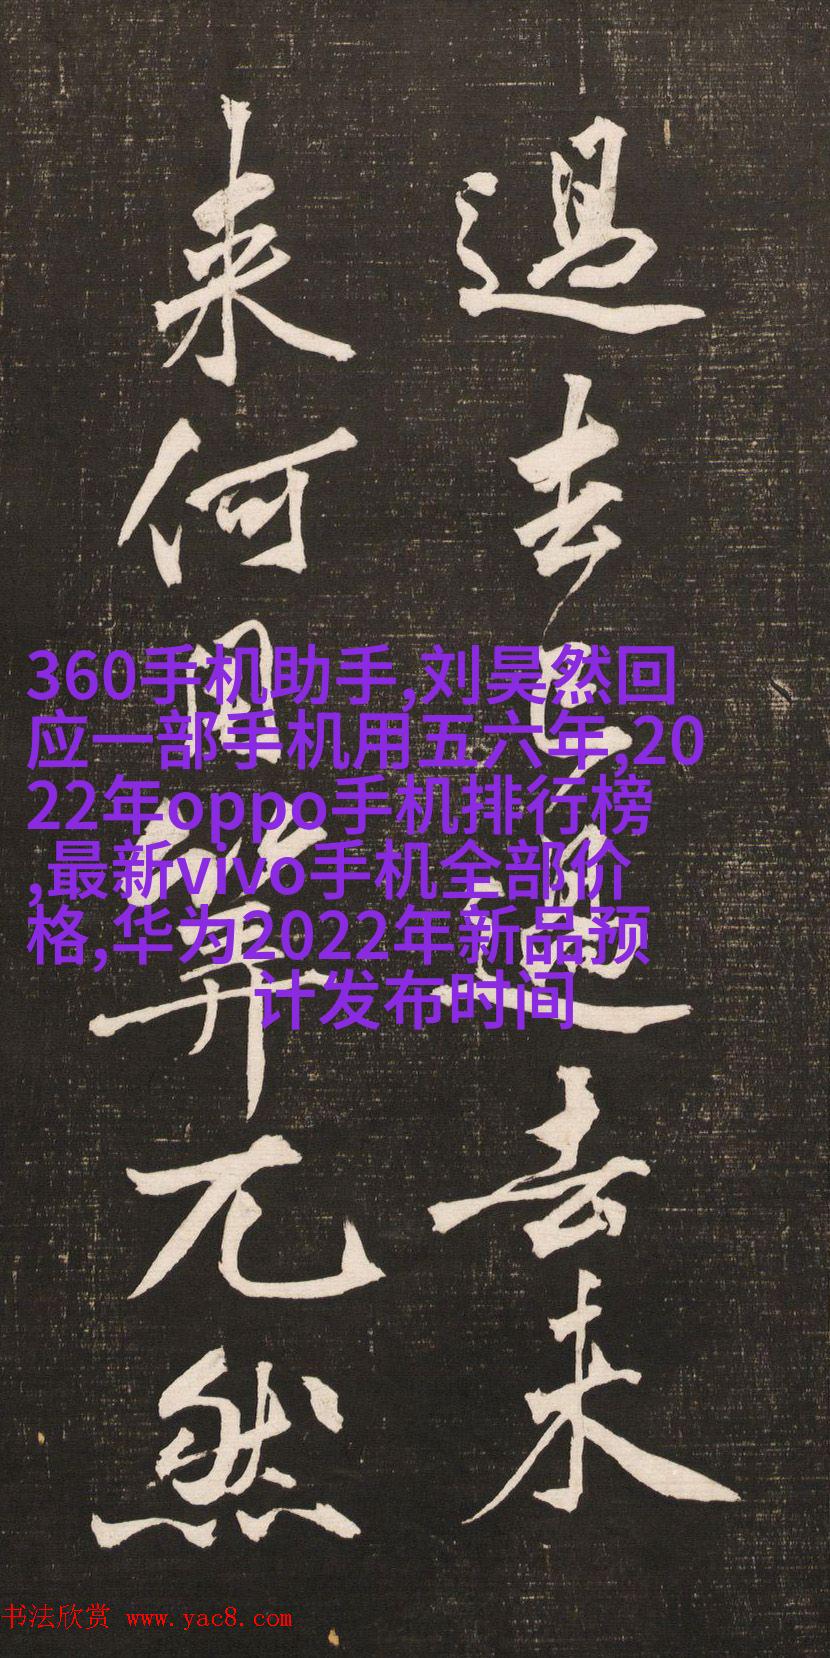 過去已過去未
来何用筭兀然
360手机助手,刘昊然回
应一部手机用五六年,20
22年oppo手机排行榜
,最新vivo手机全部价
格,华为2022年新品预
计发布时间
书法欣赏 www.yac8.com